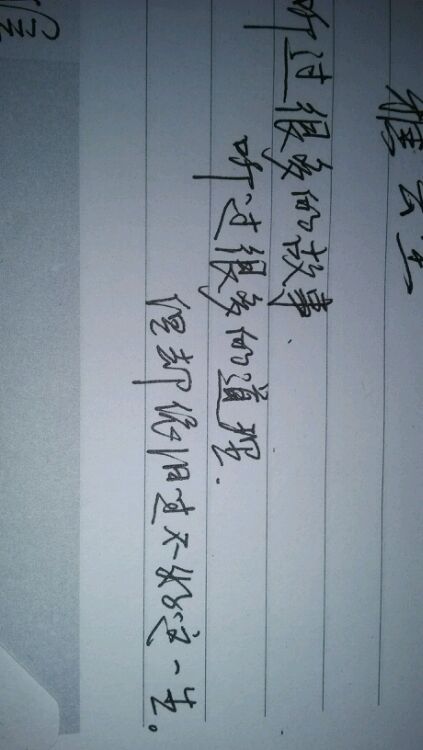 听过很多的故事
听过很多的道理.
但却依旧过不好这一生。